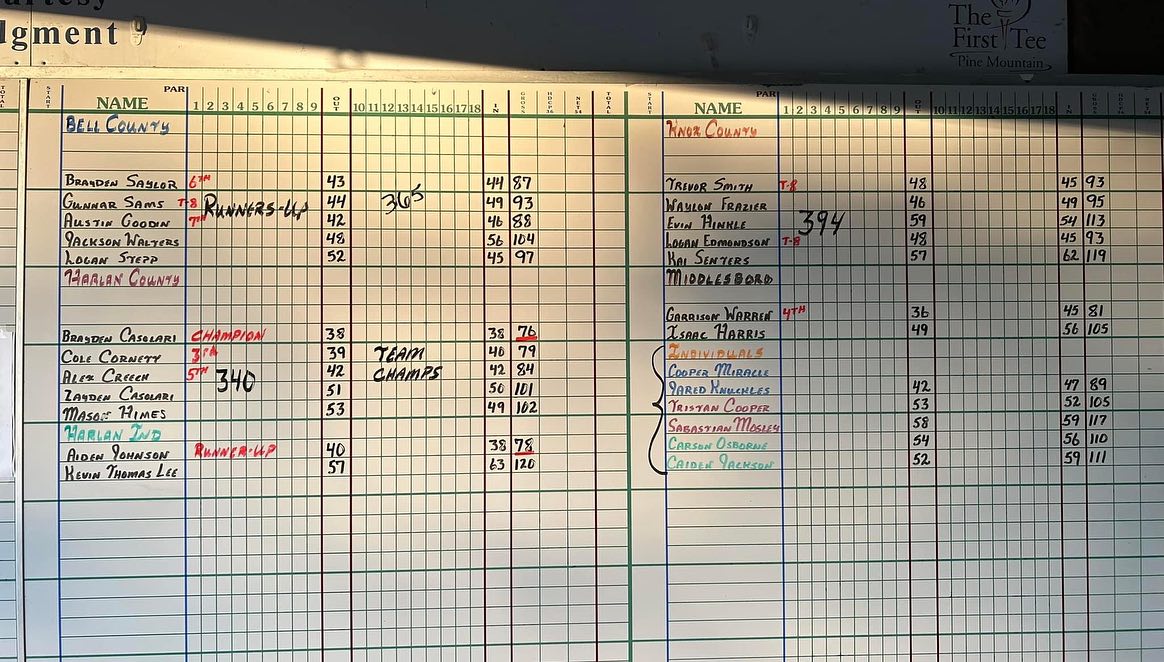 rtesy
dgment
The
First Tee
Pine Mountain
TOTAL START NAME PAR 1 2 3 4 5 6 7 8 9 OUT 10 11 12 13 14 15 16 17 18 IN GROSS HDCP NET TOTAL
BELL COUNTY
BRAYDEN SAYLOR 6TH 43 44 87
GUNNAR SAMS T-8 RUNNERS-UP 44 365 49 93
AUSTIN GOODIN 7TH 42 46 88
JACKSON WALTERS 48 56 104
LOGAN STEPP 52 45 97
HARLAN COUNTY
BRAYDEN CASOLARI CHAMPION 38 38 76
COLE CORNETT 3RD 39 TEAM 40 79
ALEX CREECH 5TH 340 42 CHAMPS 42 84
ZAYDEN CASOLARI 51 50 101
MASON HIMES 53 49 102
HARLAN IND
AIDEN JOHNSON RUNNER-UP 40 38 78
KEVIN THOMAS LEE 57 63 120
START NAME PAR 1 2 3 4 5 6 7 8 9 OUT 10 11 12 13 14 15 16 17 18 IN GROSS
KNOX COUNTY
TREVOR SMITH T-8 48 45 93
WAYLON FRAZIER 46 49 95
EVIN HINKLE 394 59 54 113
LOGAN EDMONDSON T-8 48 45 93
KAI SENTERS 57 62 119
MIDDLESBORO
GARRISON WARREN 4TH 36 45 81
ISAAC HARRIS 49 56 105
INDIVIDUALS
COOPER MIRACLE
JARED KNUCKLES 42 47 89
TRISTAN COOPER 53 52 105
SABASTIAN MOSLEY 58 59 117
CARSON OSBORNE 54 56 110
CAIDEN JACKSON 52 59 111